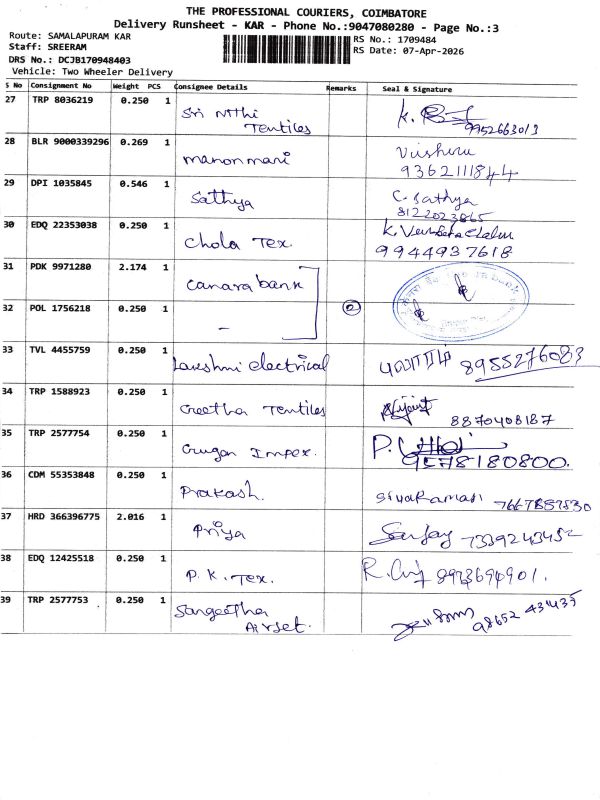 THE PROFESSIONAL COURIERS, COIMBATORE
Delivery Runsheet - KAR - Phone No.:9047080280 - Page No.:3
Route: SAMALAPURAM KAR
RS No.: 1709484
Staff: SREERAM
RS Date: 07-Apr-2026
DRS No.: DCJB170948403
Vehicle: Two Wheeler Delivery
S No Consignment No Weight PCS Consignee Details Remarks Seal & Signature
27 TRP 8036219 0.250 1 Sri Nithi
Textiles K. 9952663013
28 BLR 9000339296 0.269 1 manonmani
9362111844
29 DPI 1035845 0.546 1 Sathya C. Sathya
8122023865
30 EDQ 22353038 0.250 1 Chola Tex. K.
9944937618
31 PDK 9971280 2.174 1 Canara bank
32 POL 1756218 0.250 1 - 2
33 TVL 4455759 0.250 1 Lakshmi electrical 8955276083
34 TRP 1588923 0.250 1 Geetha Textiles
8870408187
35 TRP 2577754 0.250 1 Gugan Impex. P.
9578180800.
36 CDM 55353848 0.250 1 Prakash. Sivaramani
37 HRD 366396775 2.016 1 Priya Sanjay 7339243452
38 EDQ 12425518 0.250 1 P. K. Tex. R.
39 TRP 2577753 0.250 1 Sangeetha
Airset.